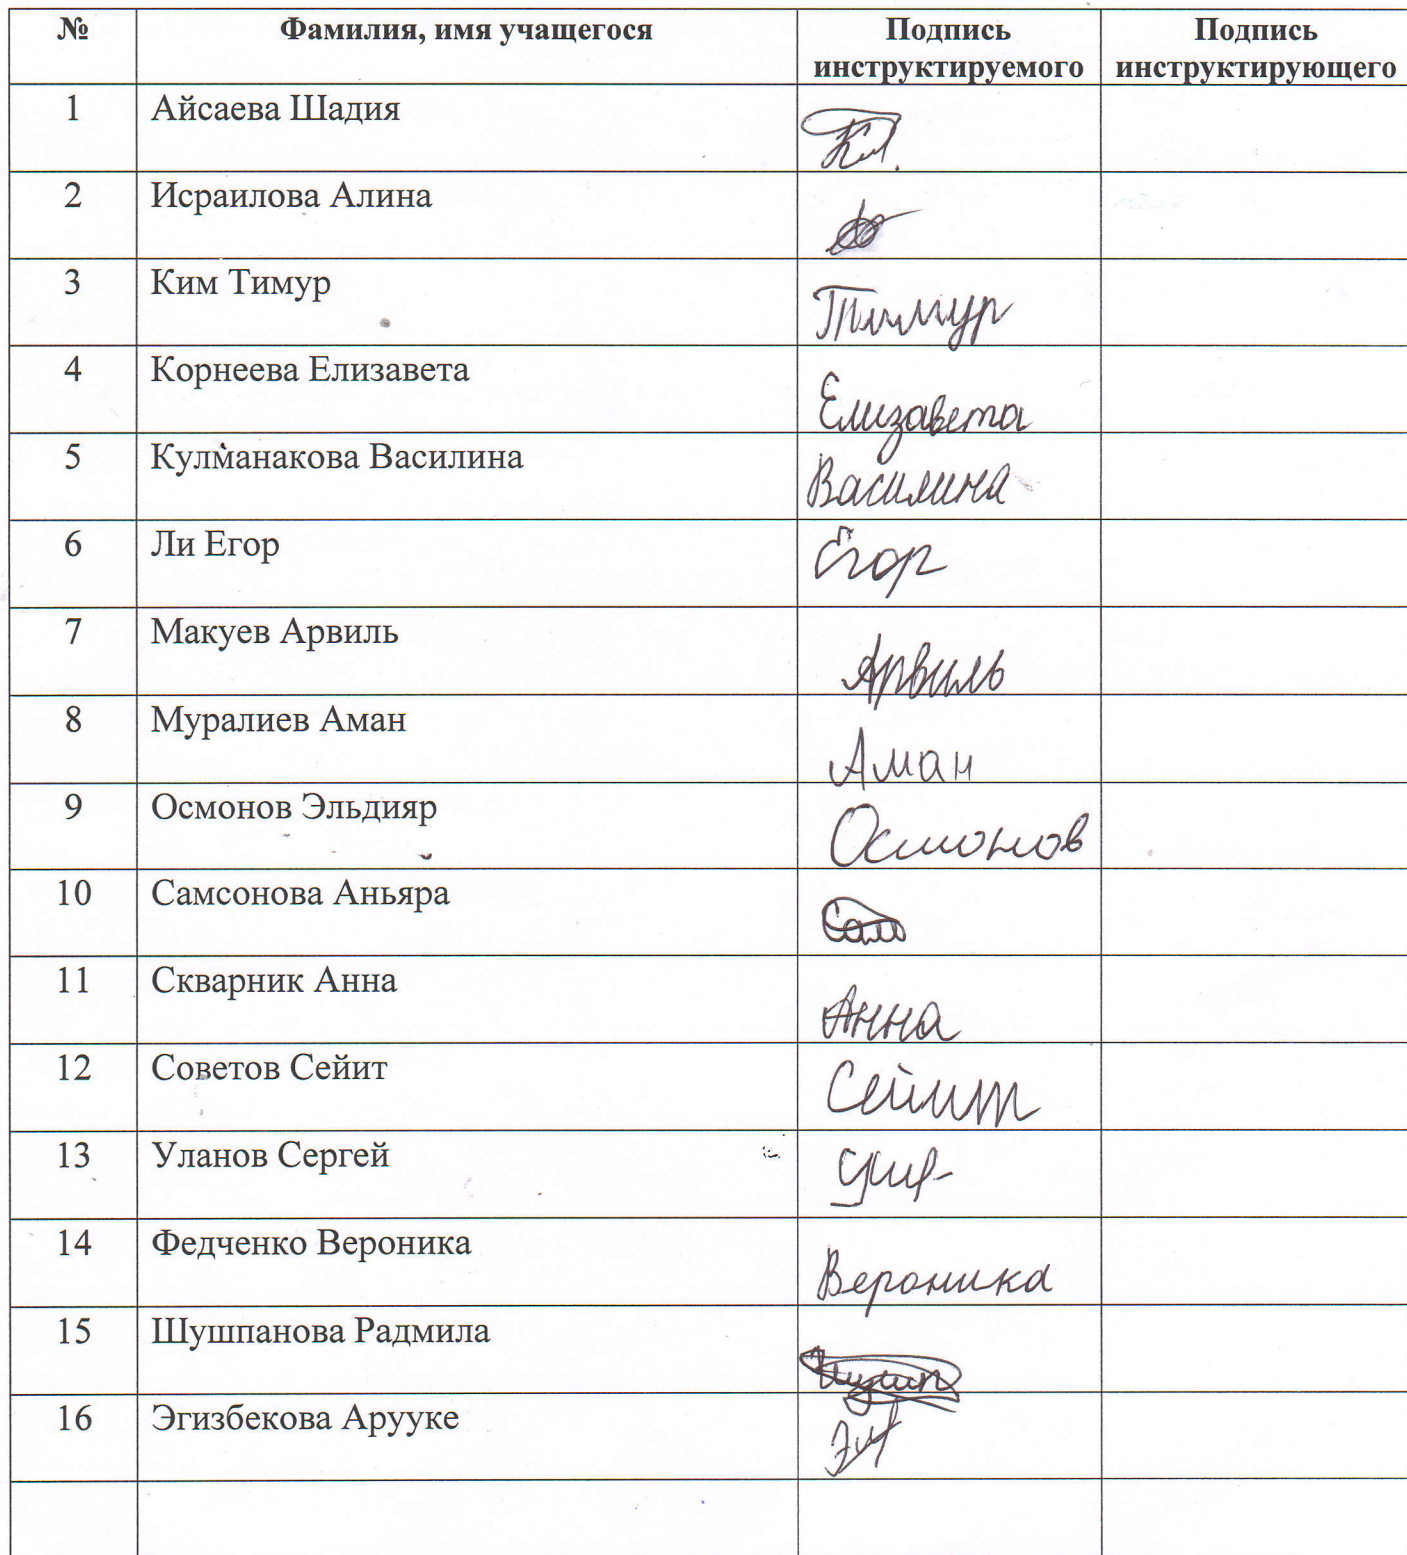 № Фамилия, имя учащегося Подпись Подпись
инструктируемого инструктирующего
1 Айсаева Шадия
2 Исраилова Алина
3 Ким Тимур
Тимур
4 Корнеева Елизавета
Елизавета
5 Кулманакова Василина
Василина
6 Ли Егор
Егор
7 Макуев Арвиль
Арвиль
8 Муралиев Аман
Аман
9 Осмонов Эльдияр
Осмонов
10 Самсонова Аньяра
Сам
11 Скварник Анна
Анна
12 Советов Сейит
Сейит
13 Уланов Сергей
14 Федченко Вероника
Вероника
15 Шушпанова Радмила
16 Эгизбекова Арууке